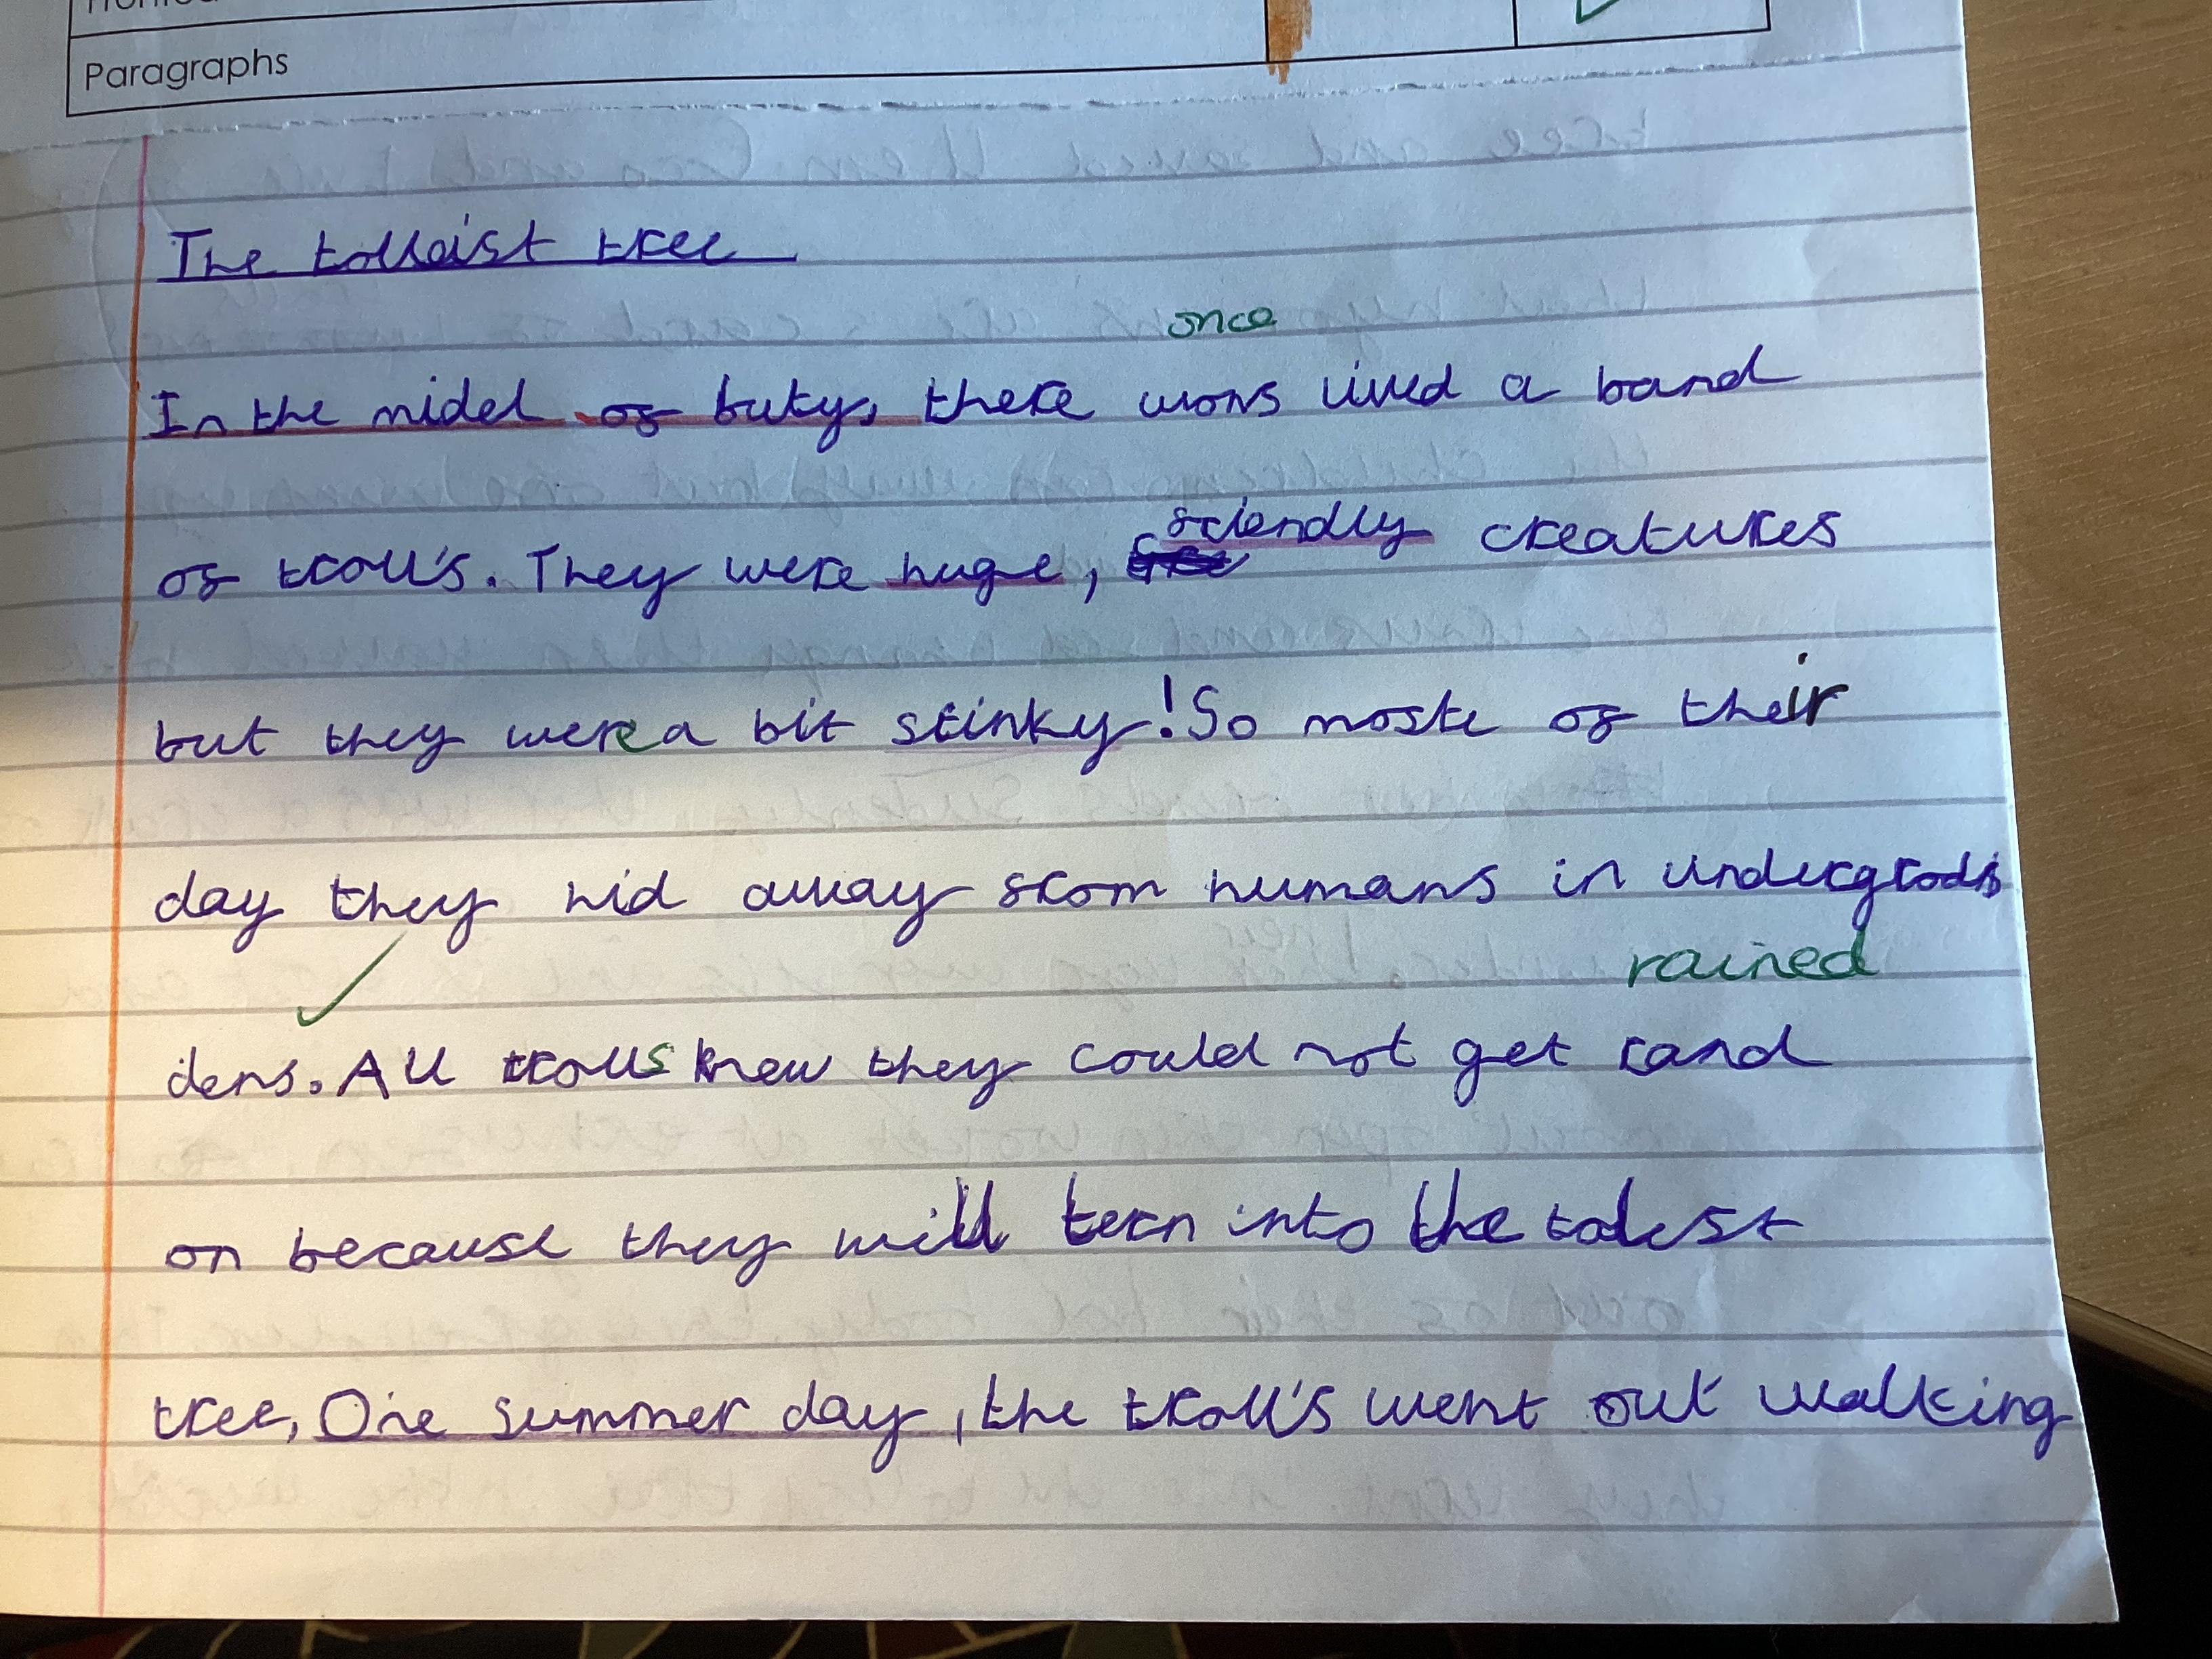 Paragraphs
The tolleist tree
once
In the midel of buty, there wons lived a band
friendly
of troll's. They were huge, creatures
but they were a bit stinky! So moste of their
day they hid away from humans in undergrods
rained
dens. All trolls knew they could not get rand
on because they will tern into the talest
tree, One summer day, the troll's went out walking